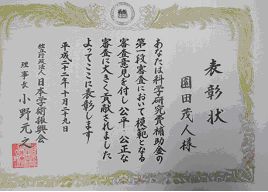 表彰状
園田茂人様
あなたは科学研究費補助金の
第一段審査において模範となる
審査意見を付し公平・公正な
審査に大きく貢献されました
よってここに表彰します
平成二十二年十月二十九日
独立行政法人日本学術振興会
理事長 小野元之